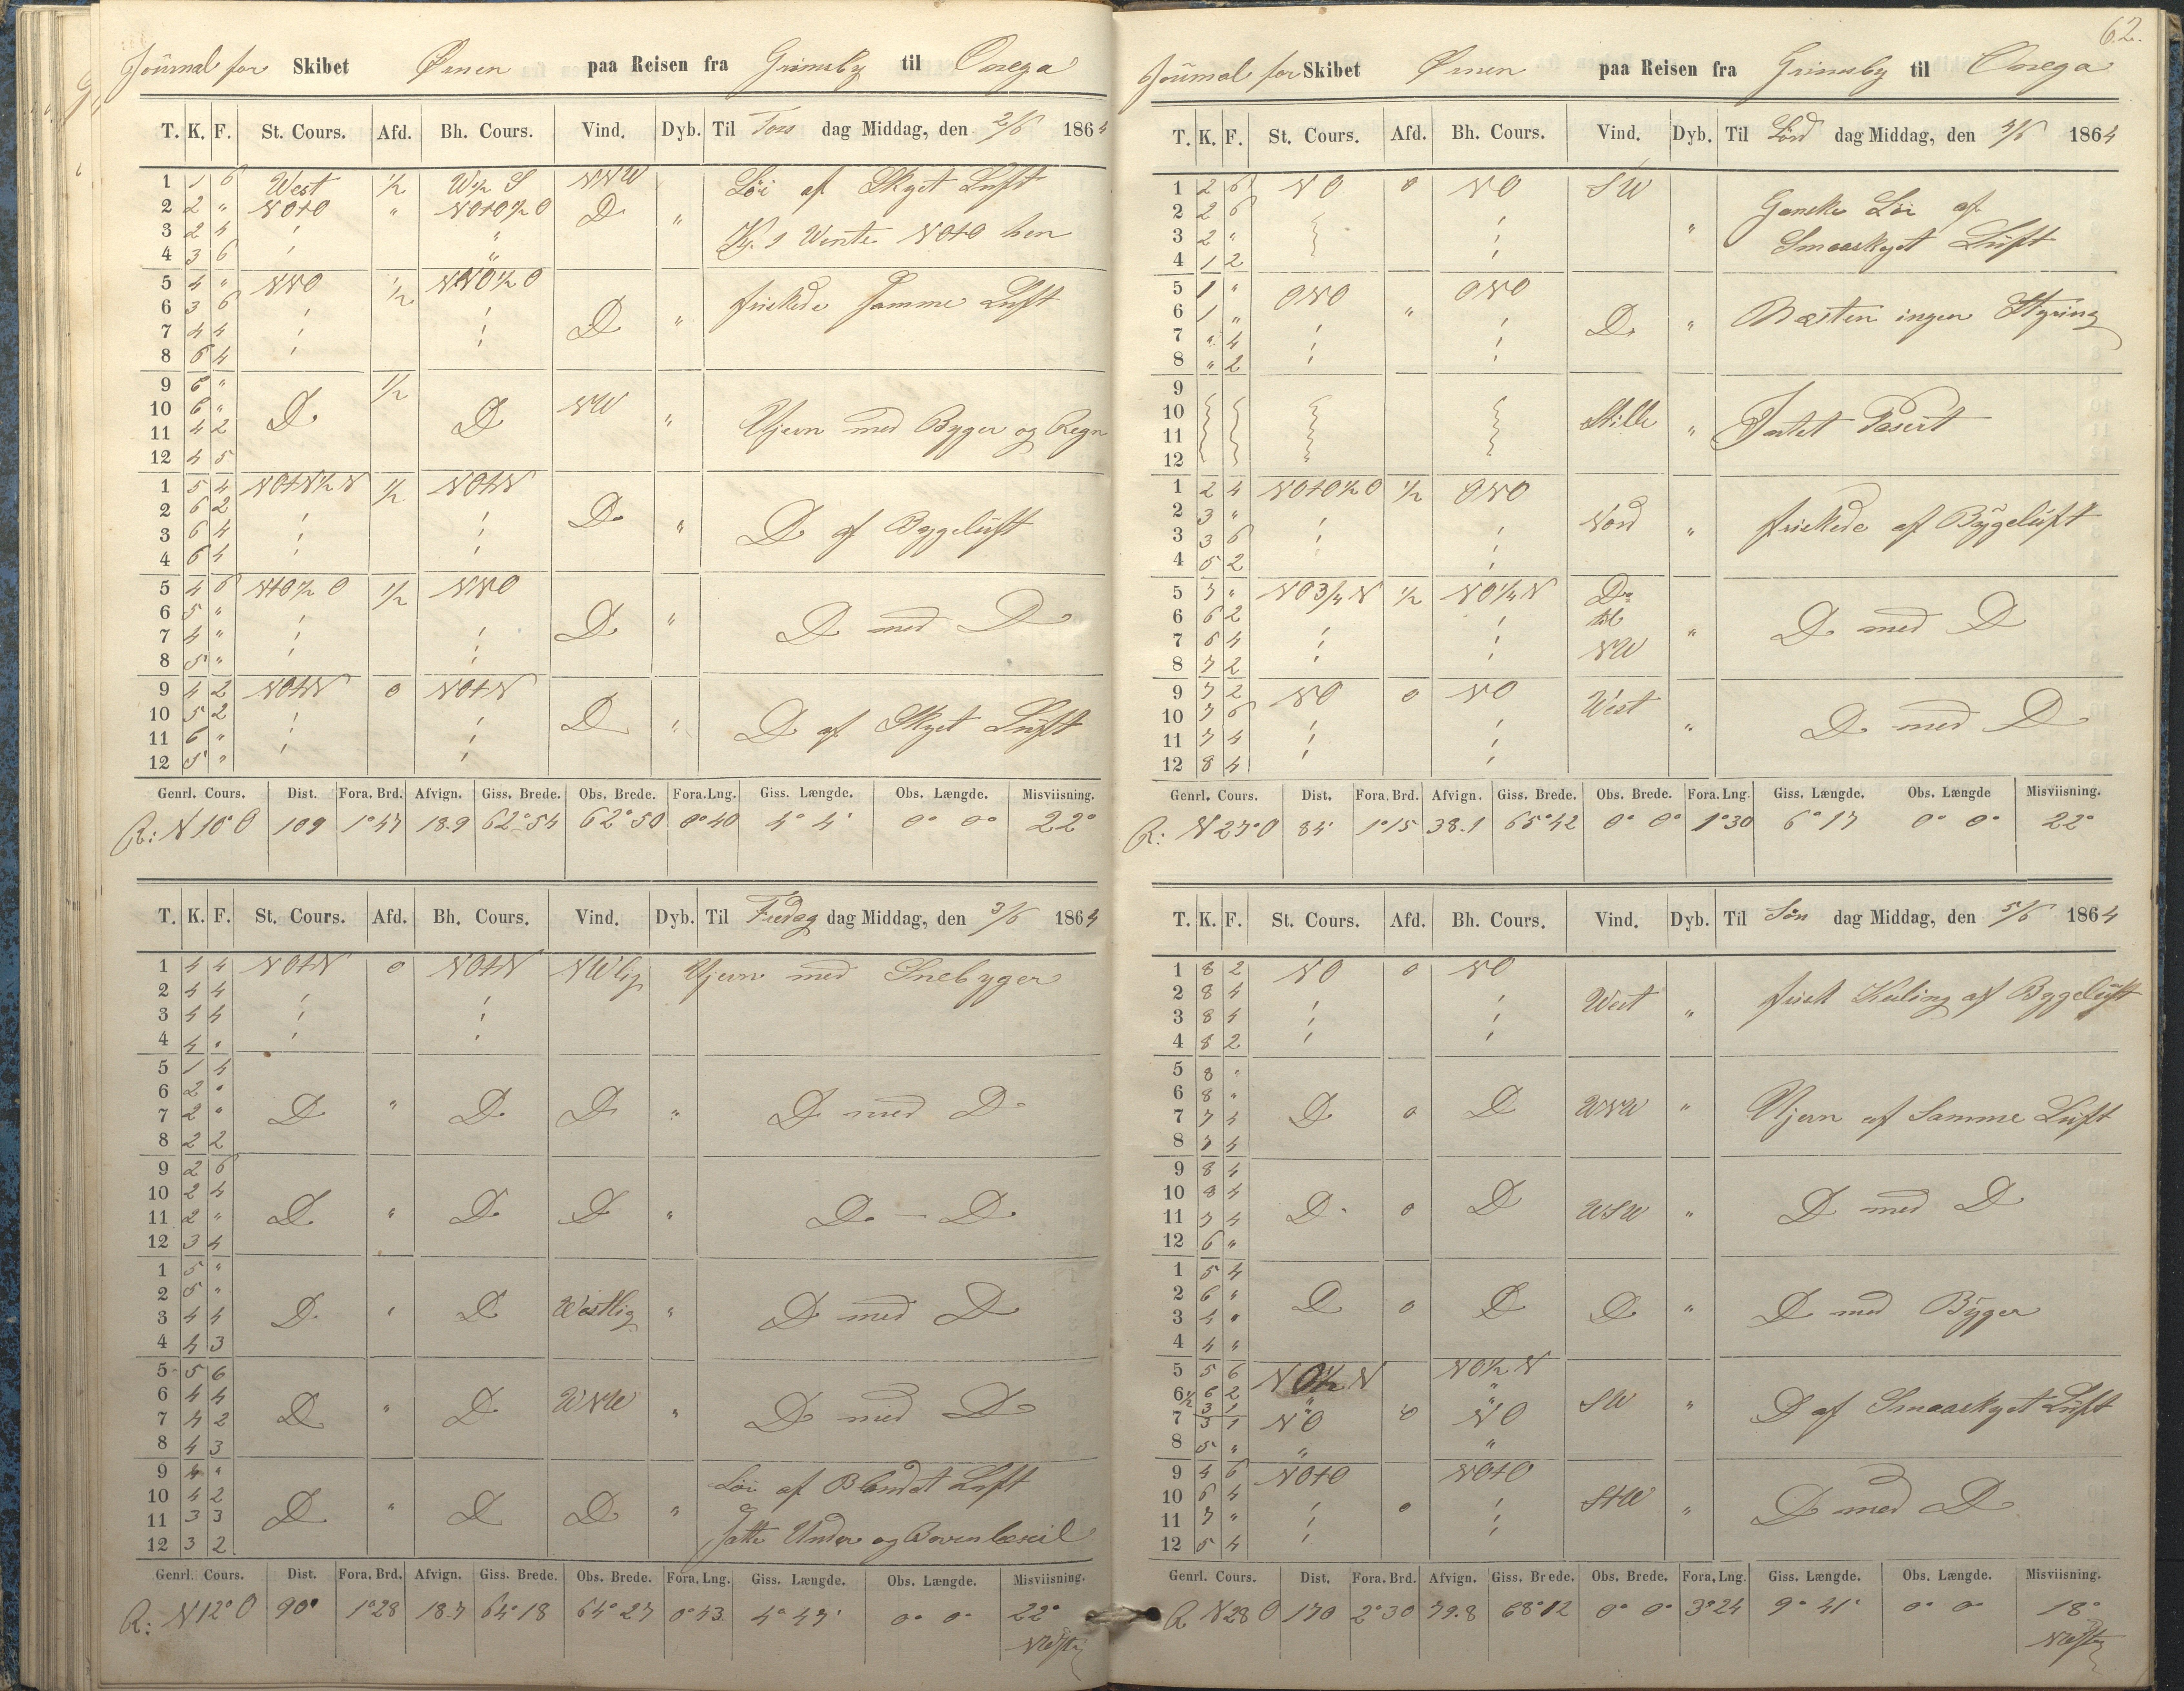 Journal for Skibet Ørnen paa Reisen fra Grimsby til Onega
T. K. F. St. Cours. Afd. Bh. Cours. Vind. Dyb. Til Tors dag Middag, den 2/6 1864
1 1 6 West 1/2 W 1/2 S NNW Löi af Skyet Luft
2 2 " NOtO " NOtO 1/2 O D "
3 2 4 " Kl. 1 Wente NOtO hen
4 3 6 "
5 4 " NNO 1/2 NNO 1/2 O
6 3 6 friskede samme Luft
7 4 4 D "
8 6 4
9 6 " 1/2
10 6 " D D NW
11 4 2 " Ujevn med Byger og Regn
12 4 5
1 5 4 NOtN 1/2 N 1/2 NOtN
2 6 2 D "
3 6 4 D af Bygeluft
4 6 4
5 4 6 NtO 1/2 O 1/2 NNO
6 5 " "
7 4 " D D med D
8 5 "
9 4 2 NOtN 0 NOtN
10 5 2 D "
11 6 " D af Skyet Luft
12 5 "
Genrl. Cours. Dist. Fora. Brd. Afvign. Giss. Brede. Obs. Brede. Fora.Lng. Giss. Længde. Obs. Længde. Misviisning.
R: N 10° O 109 1°47 18.9 62°54 62°50 0°40 4° 4' 0° 0° 22°
T. K. F. St. Cours. Afd. Bh. Cours. Vind. Dyb. Til Fredag dag Middag, den 3/6 1864
1 4 4 NOtN 0 NOtN NWlig Ujevn med Snebyger
2 4 4
3 4 4
4 4 "
5 1 4
6 2 "
7 2 " D " D D " D med D
8 2 2
9 2 6
10 2 4
11 2 " D " D D " D — D
12 3 4
1 5 "
2 5 "
3 4 4 D " D Westlig " D med D
4 4 3
5 5 6
6 4 4 WNW
7 4 2 D " D " D med D
8 4 3
9 4 " Löi af Blandet Luft
10 4 2
11 3 3 D " D D "
12 3 2 Satte Under og Bovenlæseil
Genrl. Cours. Dist. Fora. Brd. Afvign. Giss. Brede. Obs. Brede. Fora. Lng. Giss. Længde. Obs. Længde. Misviisning.
R: N 12° O 90° 1°28 18.7 64°18 64°27 0°43 4°47' 0° 0° 22°
62.
Journal for Skibet Ørnen paa Reisen fra Grimsby til Onega
T. K. F. St. Cours. Afd. Bh. Cours. Vind. Dyb. Til Lörd dag Middag, den 4/6 1864
1 2 6 NO 0 NO SW
2 2 6 Ganske Löi af
3 2 " " Smaaskyet Luft
4 1 2
5 1 " ONO ONO
6 1 " " Næsten ingen Styring
7 " 4 D "
8 " 2
9
10 Stille
11 " Intet Pasert
12
1 2 4 NOtO 1/2 O 1/2 ONO
2 3 " Nord
3 3 6 " friskede af Bygeluft
4 5 2
5 7 " NO 3/4 N 1/2 NO 1/4 N D
6 6 2 til
7 6 4 NW " D med D
8 7 2
9 7 2 NO 0 NO West
10 7 6
11 7 4 " D med D
12 8 4
Genrl. Cours. Dist. Fora. Brd. Afvign. Giss. Brede. Obs. Brede. Fora. Lng. Giss. Længde. Obs. Længde Misviisning.
R: N 27° O 84' 1°15 38.1 65°42 0° 0° 1°30 6°17 0° 0° 22°
T. K. F. St. Cours. Afd. Bh. Cours. Vind. Dyb. Til Sön dag Middag, den 5/6 1864
1 8 2 NO 0 NO
2 8 4 West frisk Kuling af Bygeluft
3 8 4 "
4 8 2
5 8 "
6 8 "
7 7 4 D 0 D WNW " Ujevn af Samme Luft
8 7 4
9 8 4
10 8 4
11 7 4 D 0 D WSW " D med D
12 6 "
1 5 4
2 6 "
3 4 " D 0 D D " D med Byger
4 4 "
5 5 6 NO 1/2 N NO 1/2 N
6 1/2 6 2 " "
3 1 SW " D af Smaaskyet Luft
7 3 1 NO 0 NO
8 5 " " "
9 4 6 NOtO NOtO
10 6 4 StW
11 7 " 0 " D med D
12 5 4
Genrl. Cours. Dist. Fora. Brd. Afvign. Giss. Brede. Obs. Brede. Fora, Lng. Giss. Længde. Obs. Længde. Misviisning.
R N 28 O 170 2°30 79.8 68°12 0° 0° 3°24 9° 41' 0° 0° 18°